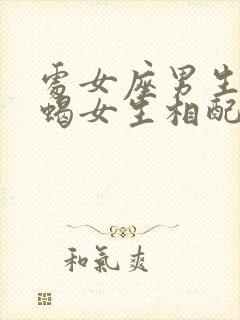 處女座男生
蝎女生相配
和氣爽